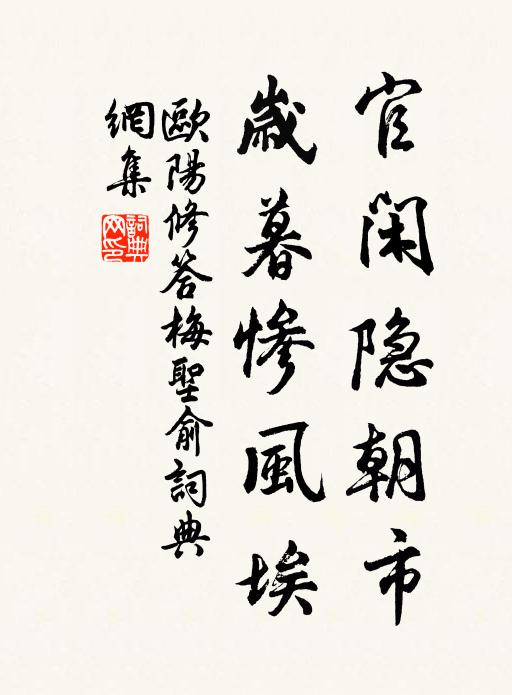 官闲隐朝市
歳暮惨風埃
歐陽修答梅聖俞詞典
網集
詞典網印